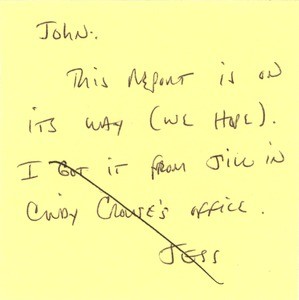 John:
This report is on
its way (we hope).
I got it from Jill in
Cindy Crouse's office.
Jess